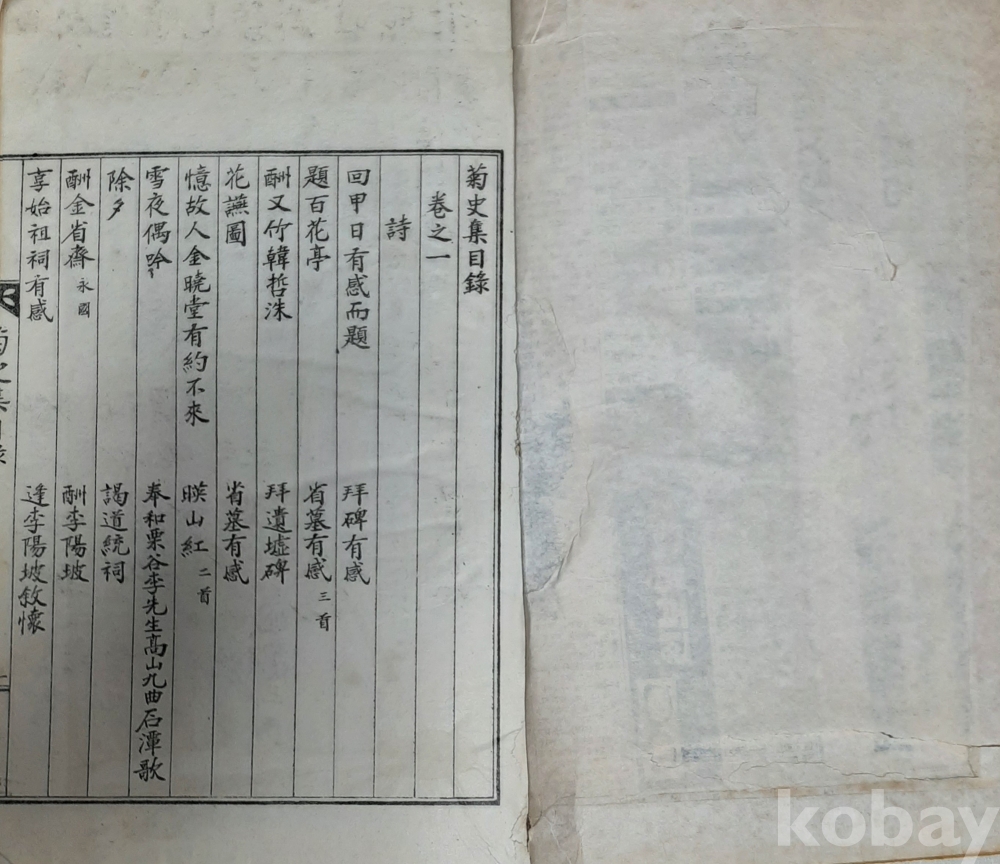 菊史集目錄
卷之一
詩
回甲日有感而題 拜碑有感
題百花亭 省墓有感 三首
酬又竹韓哲洙 拜遺墟碑
花譕圖 省墓有感
憶故人金曉堂有約不來 暎山紅 二首
雪夜偶吟 奉和栗谷李先生高山九曲石潭歌
除夕 謁道統祠
酬金省齋 永國 酬李陽坡
享始祖祠有感 逢李陽坡敘懷
菊史集目錄
kobay